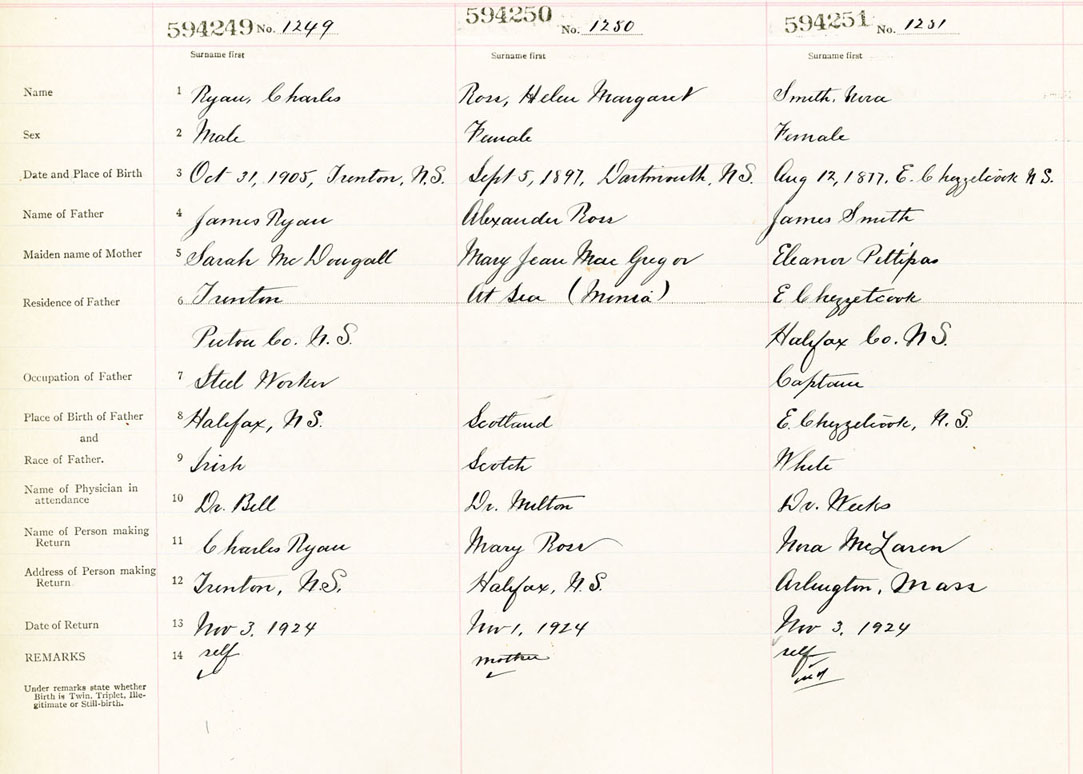 594249 No. 1249
594250 No. 1250
594251 No. 1251
Surname first Surname first Surname first
Name 1 Ryan, Charles Ross, Helen Margaret Smith, Nora
Sex 2 Male Female Female
Date and Place of Birth 3 Oct 31, 1905, Trenton, N.S. Sept 5, 1897, Dartmouth, N.S. Aug 12, 1877, E. Chezzetcook N.S.
Name of Father 4 James Ryan Alexander Ross James Smith
Maiden name of Mother 5 Sarah McDougall Mary Jean Mac Gregor Eleanor Pettipas
Residence of Father 6 Trenton At Sea (Minia) E Chezzetcook
Pictou Co. N.S. Halifax Co. N.S.
Occupation of Father 7 Steel Worker Captain
Place of Birth of Father 8 Halifax, N.S. Scotland E. Chezzetcook, N.S.
and
Race of Father. 9 Irish Scotch White
Name of Physician in
attendance 10 Dr. Bell Dr. Milton Dr. Weeks
Name of Person making
Return 11 Charles Ryan Mary Ross Nora McLaren
Address of Person making
Return 12 Trenton, N.S. Halifax, N.S. Arlington, Mass
Date of Return 13 Nov 3, 1924 Nov 1, 1924 Nov 3, 1924
REMARKS 14 self mother self
Under remarks state whether
Birth is Twin, Triplet, Ille-
gitimate or Still-birth.